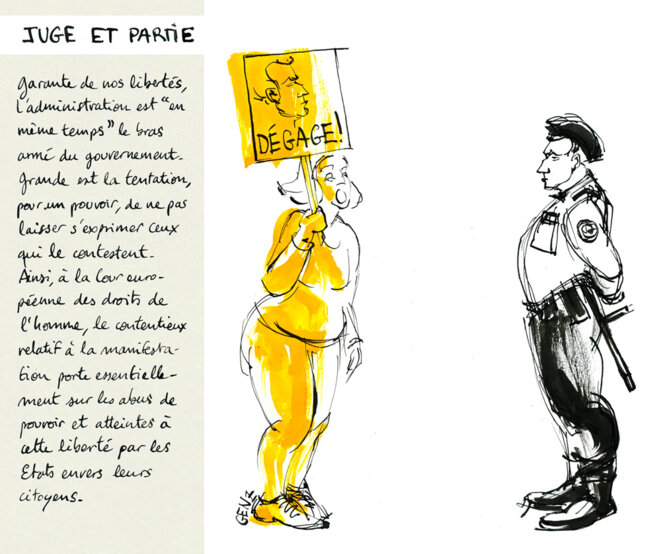 JUGE ET PARTIE
Garante de nos libertés,
l'administration est "en
même temps" le bras
armé du gouvernement.
Grande est la tentation,
pour un pouvoir, de ne pas
laisser s'exprimer ceux
qui le contestent.
Ainsi, à la Cour euro-
péenne des droits de
l'homme, le contentieux
relatif à la manifesta-
tion porte essentielle-
ment sur les abus de
pouvoir et atteintes à
cette liberté par les
Etats envers leurs
citoyens.
DÉGAGE!
GENZ